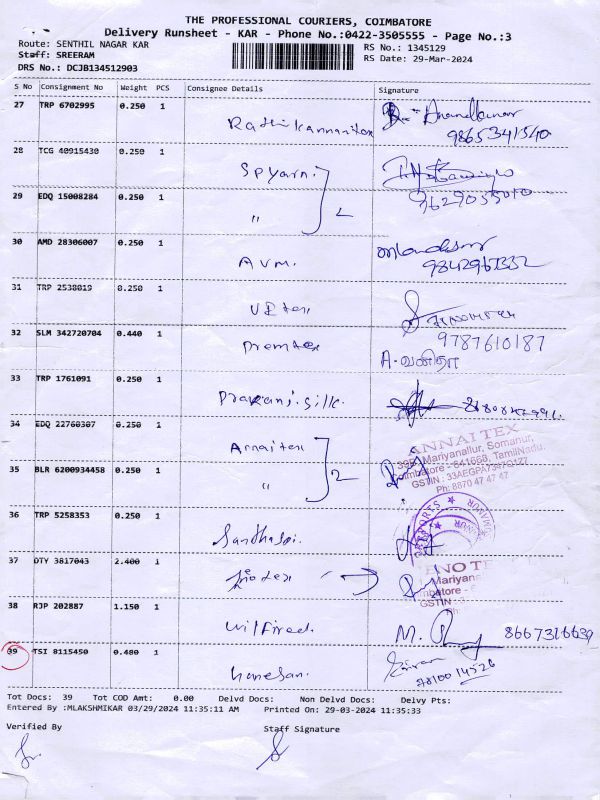 THE PROFESSIONAL COURIERS, COIMBATORE
Delivery Runsheet - KAR - Phone No.:0422-3505555 - Page No.:3
Route: SENTHIL NAGAR KAR RS No.: 1345129
Staff: SREERAM RS Date: 29-Mar-2024
DRS No.: DCJB134512903
S No Consignment No Weight PCS Consignee Details Signature
27 TRP 6702995 0.250 1
Anandkumar
9865341540
28 TCG 40915430 0.250 1
Spyarn.
29 EDQ 15008284 0.250 1
" 2
9629055010
30 AMD 28306007 0.250 1
AVM.
9842967332
31 TRP 2538019 0.250 1
VE tex
32 SLM 342720704 0.440 1
Premtex 9787610187
A. வனிதா
33 TRP 1761091 0.250 1
34 EDQ 22760307 0.250 1
Annaitex
ANNAI TEX
Mariyanallur, Somanur,
Coimbatore - 641668, TamilNadu.
GSTIN : 33AEGPA7347Q1Z7
Ph: 8870 47 47 47
35 BLR 6200934458 0.250 1
" 2
36 TRP 5258353 0.250 1
37 DTY 3817043 2.400 1
Mariyana
38 RJP 202887 1.150 1
Wilfired. M. 8667316639
39 TSI 8115450 0.480 1
Tot Docs: 39 Tot COD Amt: 0.00 Delvd Docs: Non Delvd Docs: Delvy Pts:
Entered By :MLAKSHMIKAR 03/29/2024 11:35:11 AM Printed On: 29-03-2024 11:35:33
Verified By Staff Signature